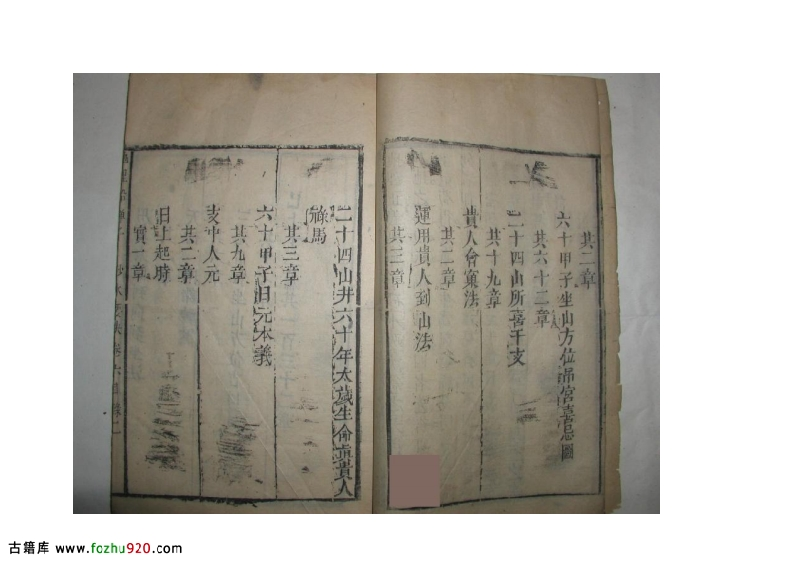 其二章
六十甲子坐山方位吊宮喜忌圖
共六十二章
二十四山所喜干支
共十九章
貴人會宿法
共二章
運用貴人到山法
共二章
二十四山并六十年太歲生命真貴人
祿馬
共三章
六十甲子日元本義
共九章
支中人元
共二章
日上起時
實一章
古籍库 www.fozhu920.com